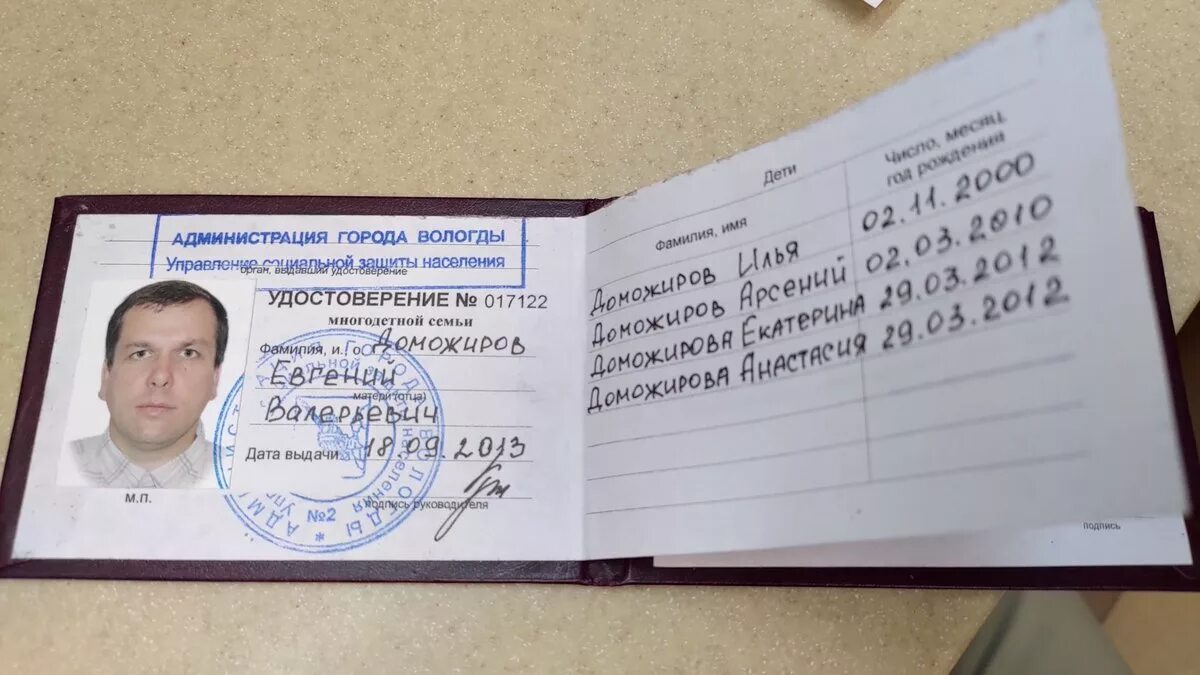 АДМИНИСТРАЦИЯ ГОРОДА ВОЛОГДЫ
Управление социальной защиты населения
орган, выдавший удостоверение
УДОСТОВЕРЕНИЕ № 017122
многодетной семьи
Фамилия, и., о. Доможиров
Евгений
матери (отца)
Валерьевич
Дата выдачи 18.09.2013
М.П.
подпись руководителя
№2
Дети
Фамилия, имя
Число, месяц
год рождения
Доможиров Илья 02.11.2000
Доможиров Арсений 02.03.2010
Доможирова Екатерина 29.03.2012
Доможирова Анастасия 29.03.2012
подпись